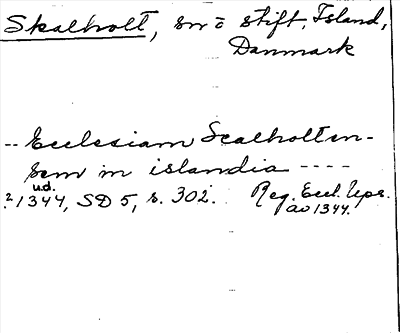 Skalholt, sn o stift, Island,
Danmark
-- Ecclesiam Scalholten-
sem in islandia ----
u.d.
? 1344, SD 5, s. 302. Reg. Eccl. Ups.
ao 1344.